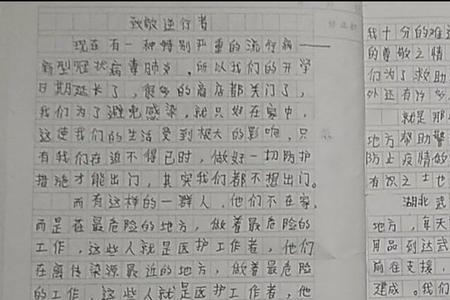 致敬逆行者
现在有一种特别严重的流行病——
新型冠状病毒肺炎。所以我们的开学
日期延长了,很多的商店都关门了,
我们为了避免感染,就只好在家中,
这使我们的生活受到极大的影响,只
有我们在迫不得已时,做好一切防护
措施才能出门,其实我们都不想出门。
而有这样的一群人,他们不在家,
而是在最危险的地方,做着最危险的
工作,这些人就是医护工作者,他们
在离传染源最近的地方,做着最危险
的工作,这些人就是医护工作者,他
我十分的难过
的尊敬之情
们为了救助
外还有许多
就是那
地方帮助警
防止疫情的
有识之士也
湖北武
地方,每天
用品到达武
前往支援,
建成。我们